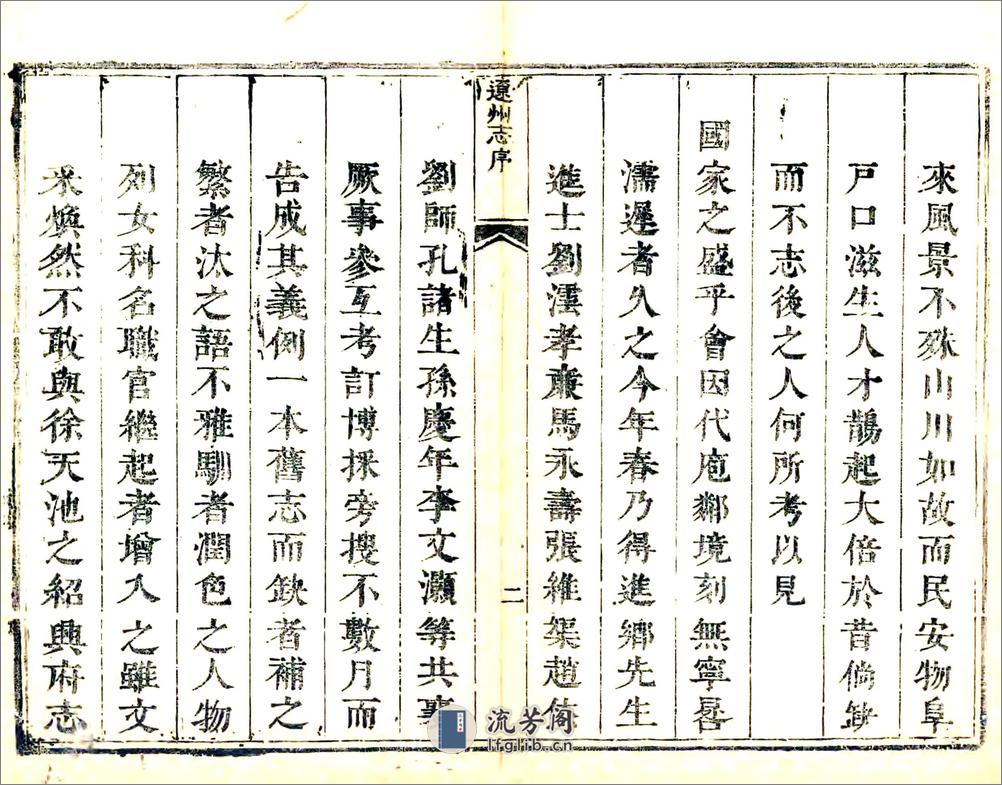 來風景不殊山川如故而民安物阜
戸口滋生人才鵲起大倍於昔倘缺
而不志後之人何所考以見
國家之盛乎會因代庖鄰境刻無寧晷
濡遲者久之今年春乃得進鄉先生
進士劉澐孝亷馬永壽張維榘趙倐
遼州志序
二
劉師孔諸生孫慶年李文灝等共襄
厥事參互考訂博採旁搜不數月而
告成其義例一本舊志而缺者補之
繁者汰之語不雅馴者潤色之人物
列女科名職官繼起者增入之雖文
采煥然不敢與徐天池之紹興府志
流芳阁
lfglib.cn